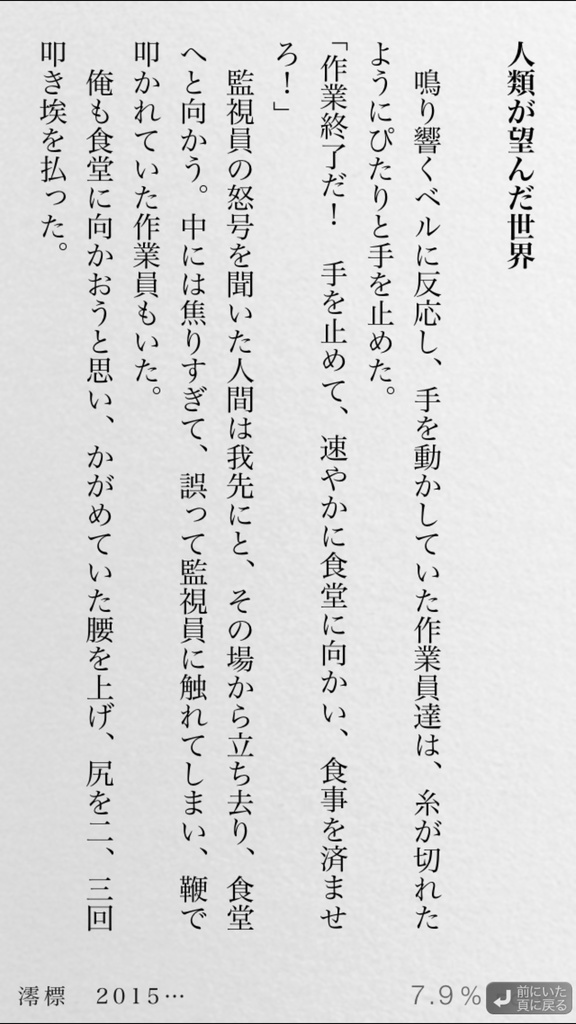 人類が望んだ世界
　鳴り響くベルに反応し、手を動かしていた作業員達は、糸が切れた
ようにぴたりと手を止めた。
「作業終了だ！　手を止めて、速やかに食堂に向かい、食事を済ませ
ろ！」
　監視員の怒号を聞いた人間は我先にと、その場から立ち去り、食堂
へと向かう。中には焦りすぎて、誤って監視員に触れてしまい、鞭で
叩かれていた作業員もいた。
　俺も食堂に向かおうと思い、かがめていた腰を上げ、尻を二、三回
叩き埃を払った。
澪標　2015…
7.9%
前にいた
頁に戻る